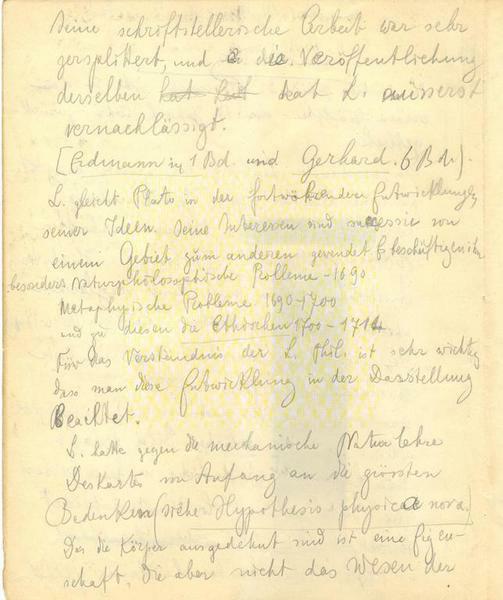 Seine schriftstellerische Arbeit war sehr
zersplittert, und die Veröffentlichung
derselben hat hat L. äusserst
vernachlässigt.
(Erdmann in 1 Bd. und Gerhard. 6 Bd.).
L. gleicht Plato in der fortwährenden Entwicklung
seiner Ideen. Seine Interessen sind successiv von
einem Gebiet zum anderen gewendet
besonders Naturphilosophische Probleme - 1690
Metaphysische Probleme 1690-1700
und zu diesen die Ethischen 1700 - 1714
Für das Verständnis der L. Phil. ist sehr wichtig
dass man diese Entwicklung in der Darstellung
Beachtet.
L. hatte gegen die mechanische Naturlehre
Deskartes im Anfang an die grössten
Bedenken (siehe Hypothesis physica nova.)
Das die Körper ausgedehnt sind ist eine Eigen-
schaft, die aber nicht das Wesen der